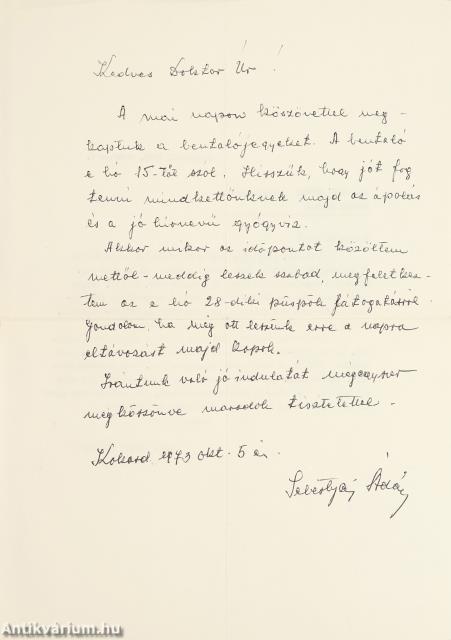 Kedves Doktor Úr!
A mai napon köszönettel meg-
kaptuk a beutalójegyeket. A beutaló
e hó 15-től szól. Hisszük, hogy jót fog
tenni mindkettőnknek majd az ápolás
és a jó hírnevű gyógyvíz.
Akkor mikor az időpontot közöltem
mettől-meddig leszek szabad, megfeletkez-
tem az e hó 28-diki püspök látogatásról.
Gondolom, ha még ott leszünk erre a napra
eltávozást majd kapok.
Irántunk való jó indulatát mégegyszer
megköszönve maradok tisztelettel -
Kokard 1973 okt. 5 én.
Sebestyén Ádám
Antikvárium.hu